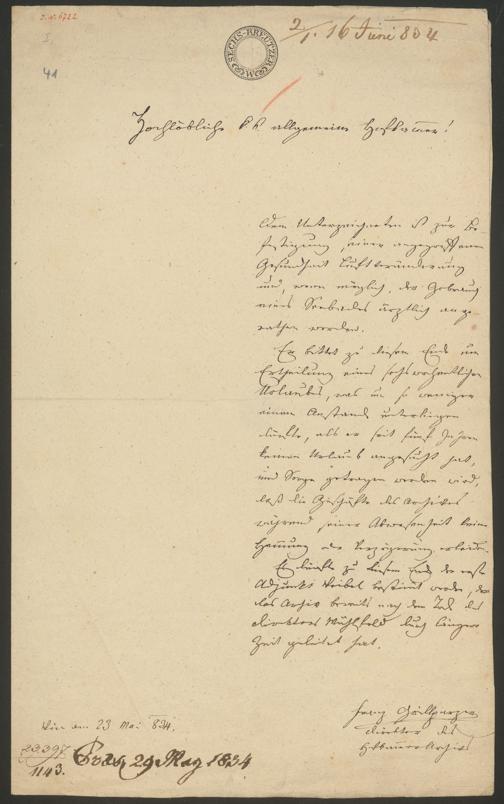 J.N. 6722
41
SECHS KREUTZER
2/1. 16 Juni 834
Hochlöbliche k.k. allgemeine Hofkammer!
Dem Unterzeichneten ist zur Be-
festigung seiner angegriffenen
Gesundheit Luftveränderung
und, wenn möglich, der Gebrauch
eines Seebades ärztlich ange-
rathen worden.
Er bittet zu diesem Ende um
Ertheilung eines sechswochentlichen
Urlaubes, was um so weniger
einem Anstande unterliegen
dürfte, als er seit fünf Jahren
keinen Urlaub angesucht hat,
und Sorge getragen werden wird,
daß die Geschäfte des Archives
während seiner Abwesenheit keine
Hemmung oder Verzögerung erleiden.
Es dürfte zu diesem Ende der erste
Adjunkt bestimmt werden, der
das Archiv bereits nach dem Tode des
Direktors Wühlfeld durch längere
Zeit geleitet hat.
Franz Grillparzer
Direktor des
Hofkammer Archivs
Wien am 23 Mai 834.
23397
1143.
29 May 1834